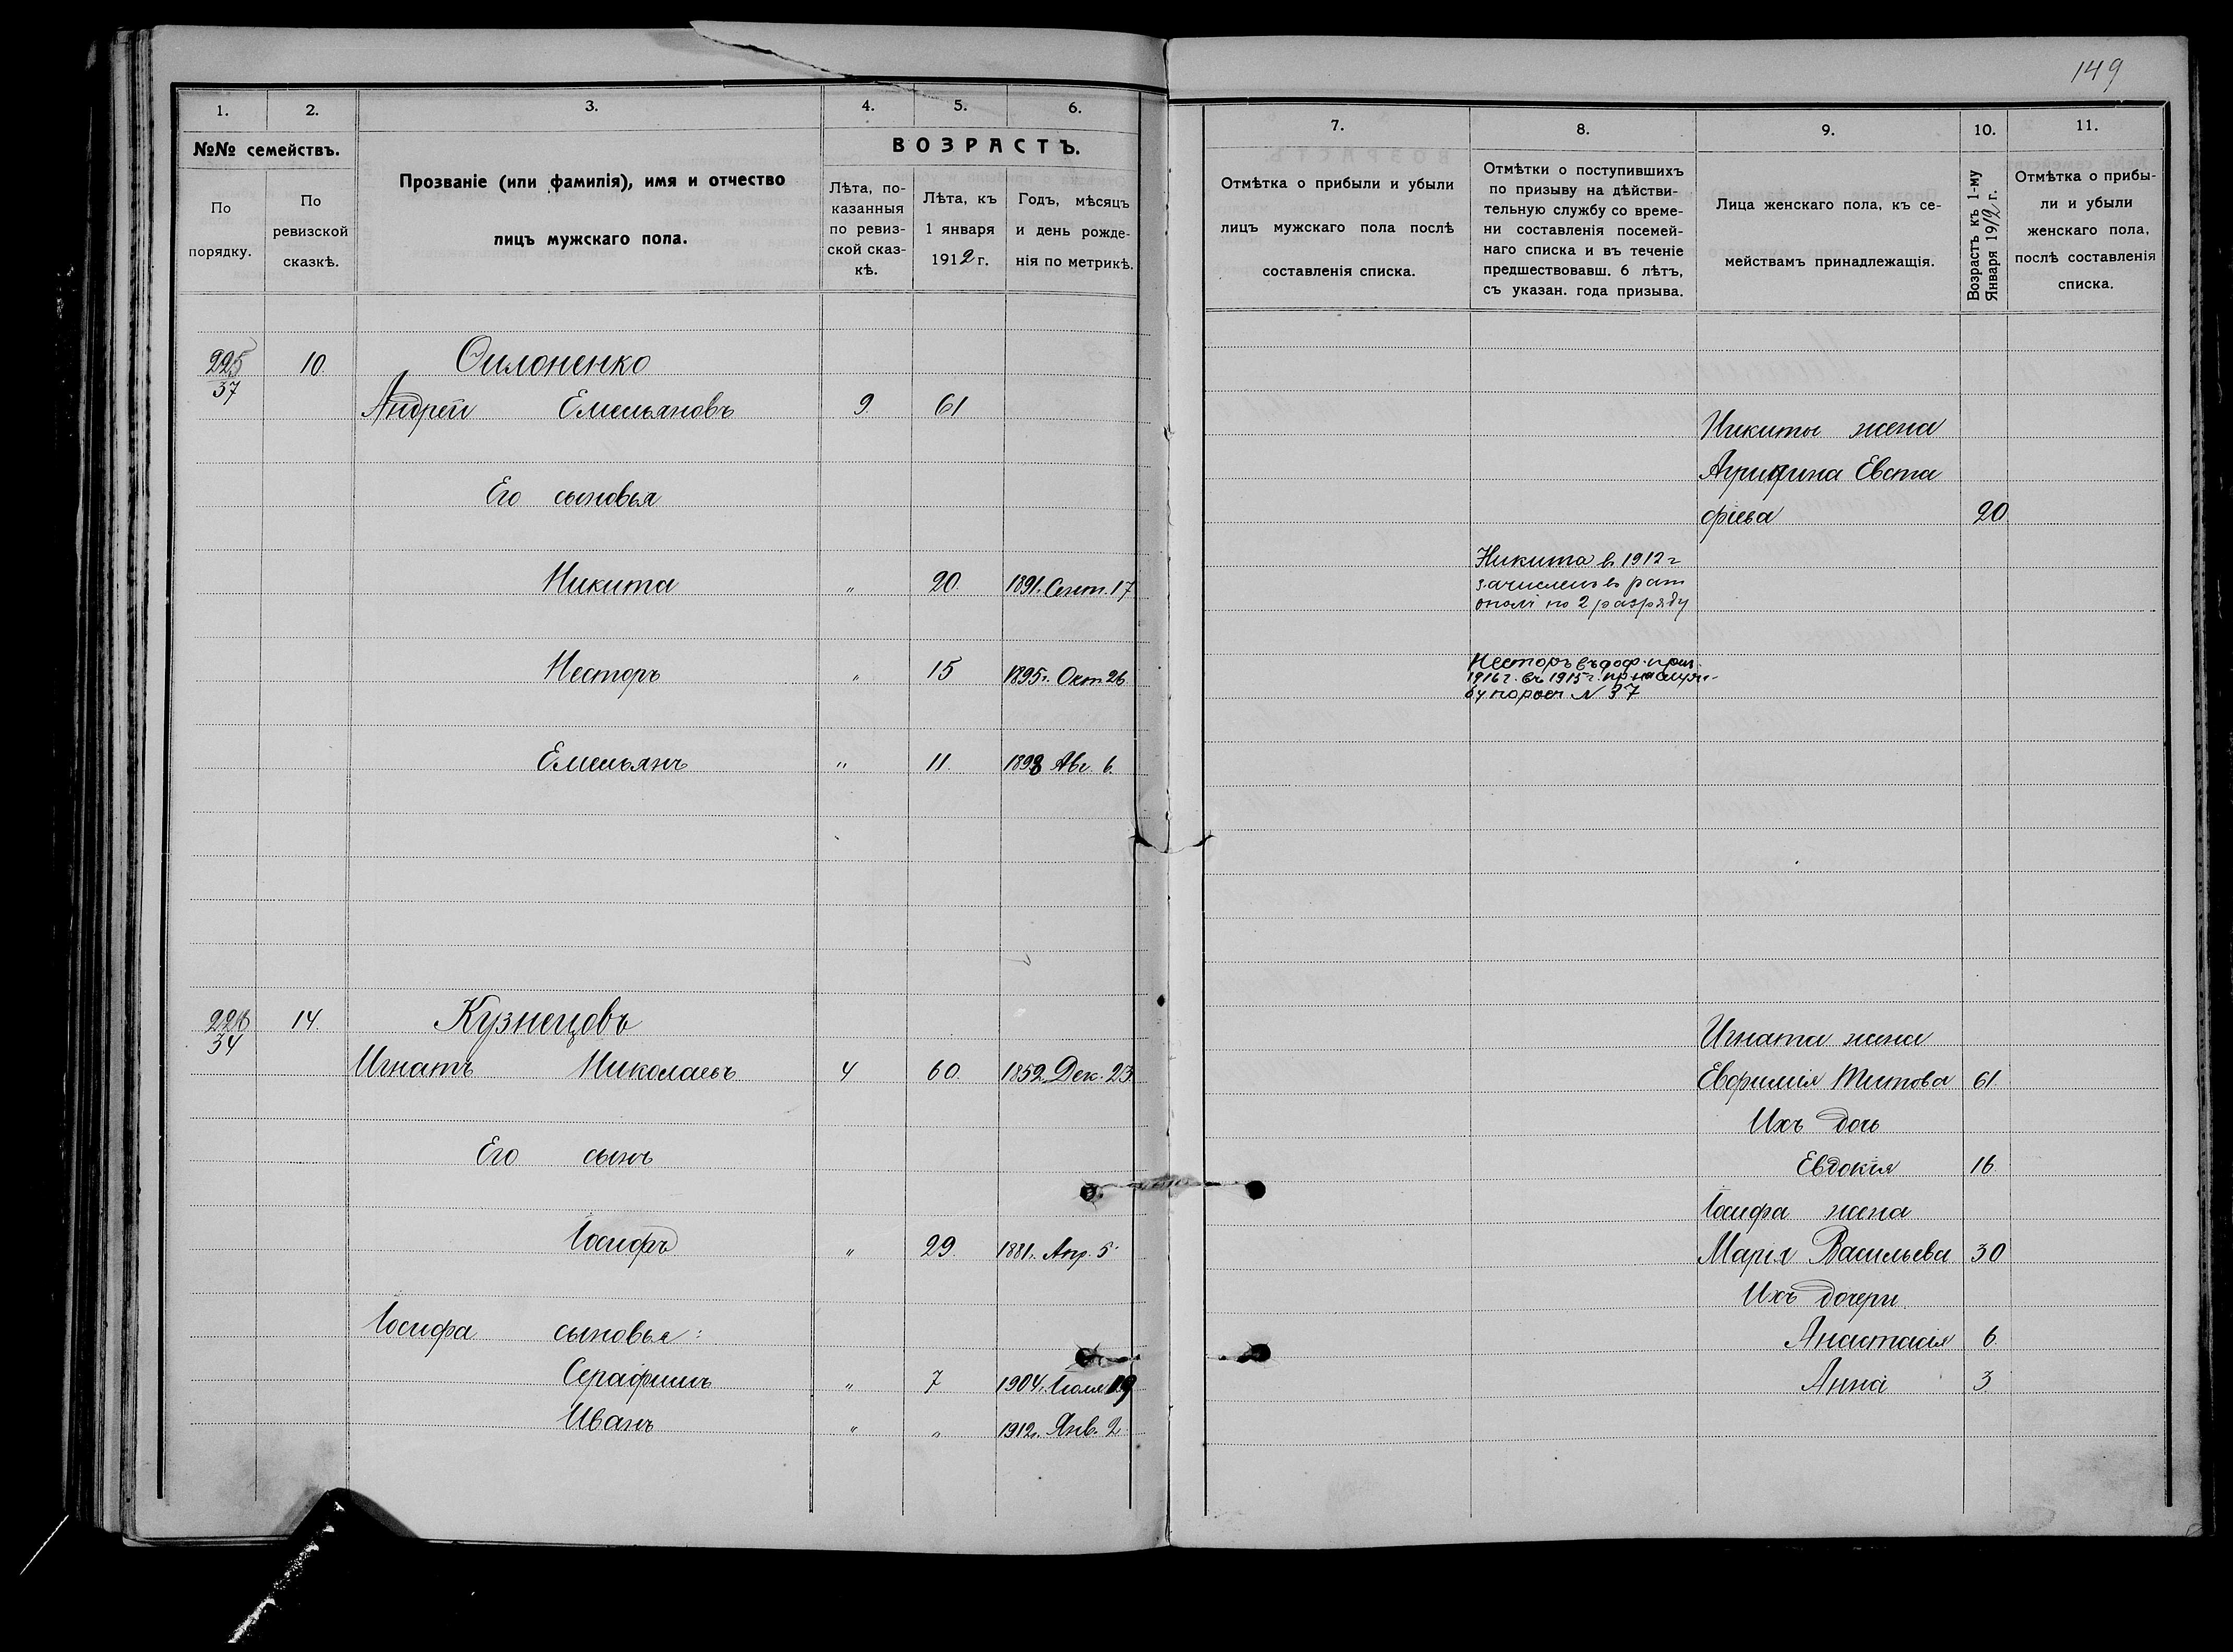 149
1.
2.
3.
4.
5.
6.
№№ семействъ.
По порядку.
По ревизской сказкѣ.
Прозваніе (или фамилія), имя и отчество
лицъ мужскаго пола.
ВОЗРАСТЪ.
Лѣта, по-
казанныя
по ревиз-
ской сказ-
кѣ.
Лѣта, къ
1 января
1912 г.
Годъ, мѣсяцъ
и день рожде-
нія по метрикѣ.
7.
8.
9.
10.
11.
Отмѣтка о прибыли и убыли
лицъ мужскаго пола послѣ
составленія списка.
Отмѣтки о поступившихъ
по призыву на дѣйстви-
тельную службу со време-
ни составленія посемей-
наго списка и въ теченіе
предшествовавш. 6 лѣтъ,
съ указан. года призыва.
Лица женскаго пола, къ се-
мействамъ принадлежащія.
Возрастъ къ 1-му
Января 1912 г.
Отмѣтка о прибы-
ли и убыли
женскаго пола,
послѣ составленія
списка.
225 10. Силоненко
37
Андрей Емельяновъ 9 61
Его сыновья
Никита " 20. 1891. Сент. 17
Несторъ " 15 1895г. Окт. 26
Емельянъ " 11. 1898 Авг. 6.
226 14. Кузнецовъ
34
Игнатъ Николаевъ 4 60. 1852. Дек. 23
Его сынъ
Іосифъ " 29. 1881. Апр. 5
Іосифа сыновья:
Серафимъ " 7 1904. Іюля 19
Иванъ " " 1912. Янв. 2
Никиты жена
Агрипина Евста
фіева 20
Никита в 1912 г
зачислен в рат
опол по 2 разряду
Несторъ въ
1916 г. въ 1915 г.
N 37
Игната жена
Евфимія Титова 61.
Ихъ дочь
Евдокія 16
Іосифа жена
Марія Васильева 30
Ихъ дочери
Анастасія 6
Анна 3